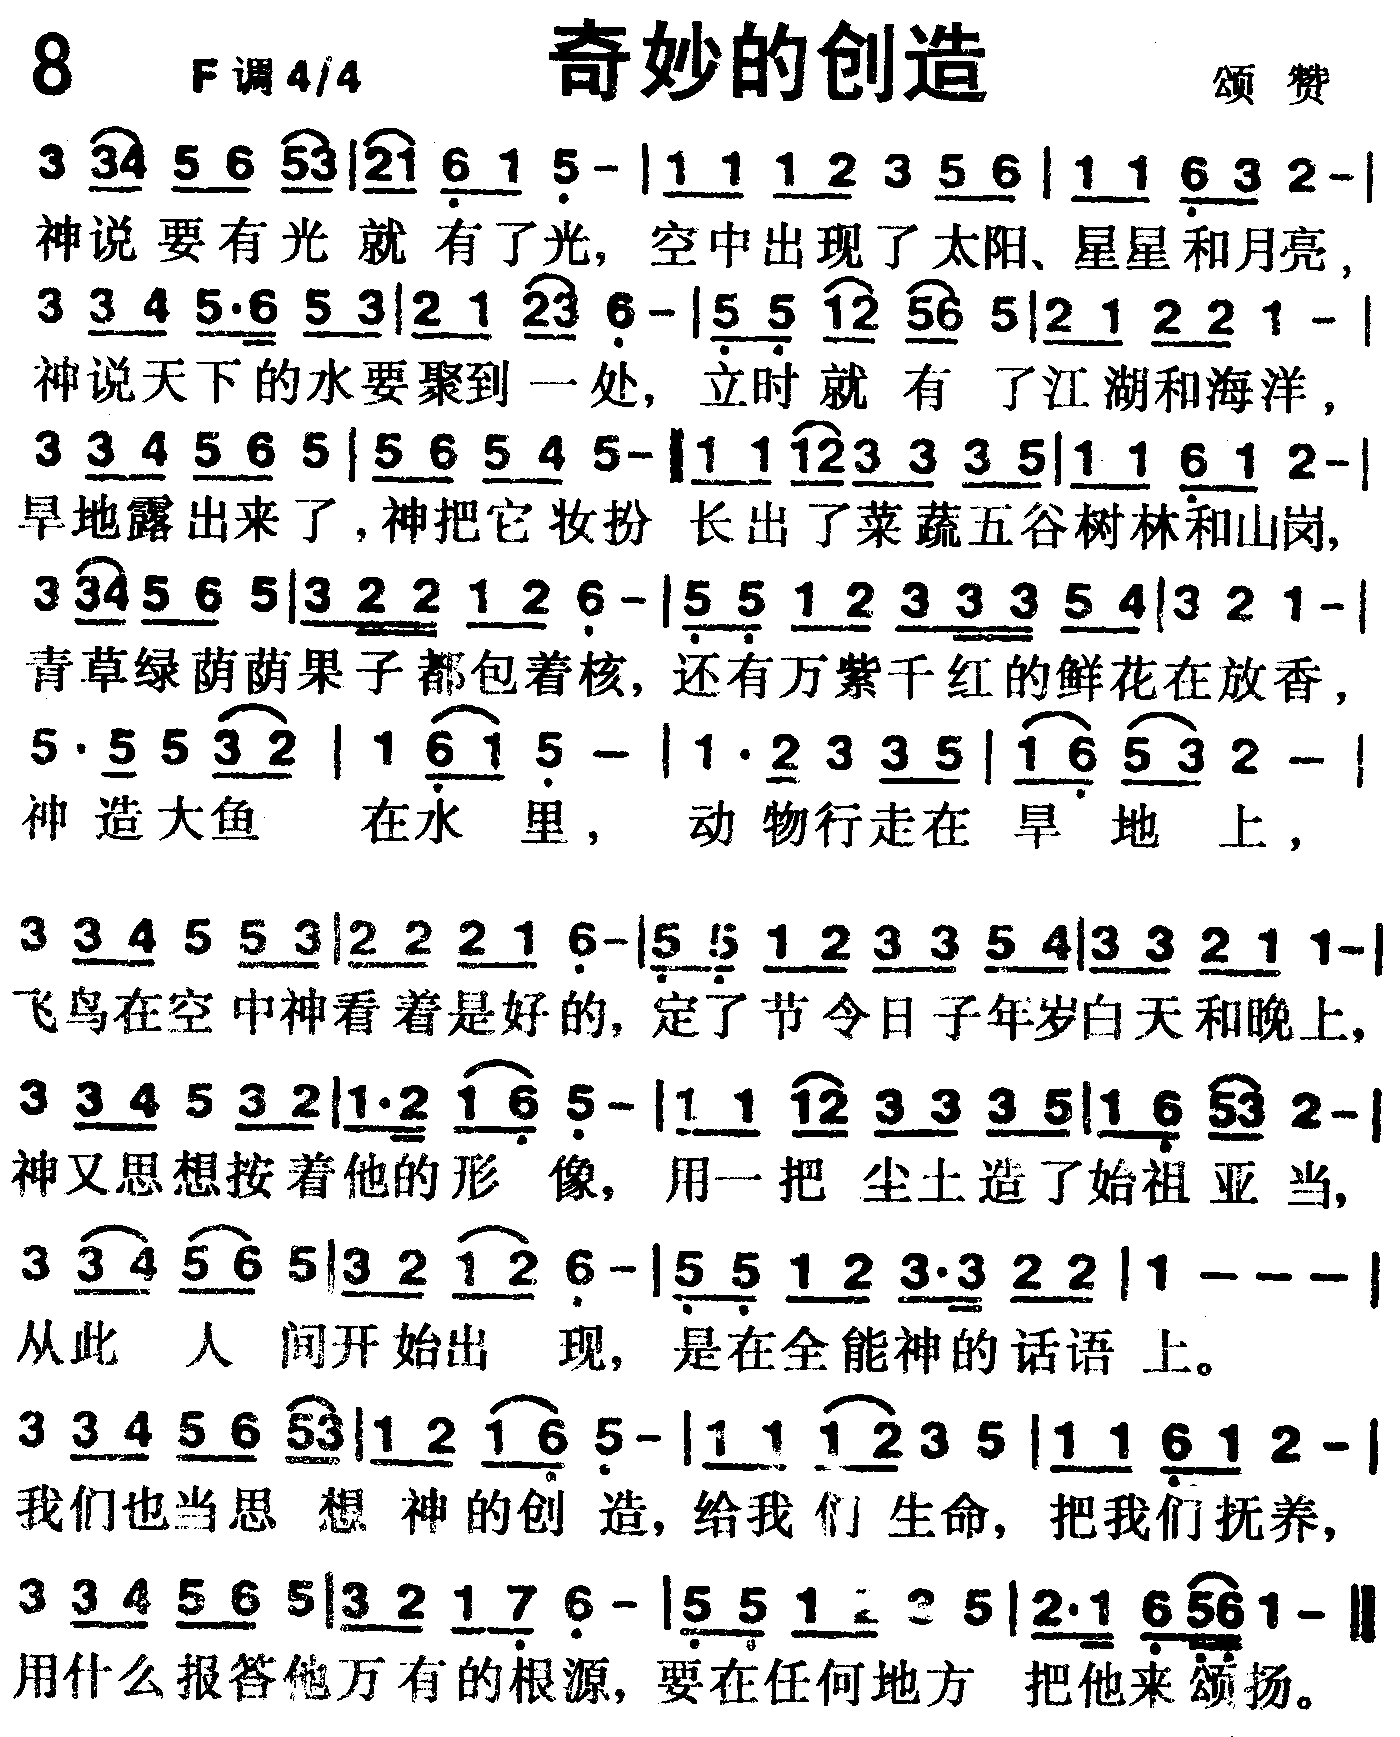 8 F调4/4 奇妙的创造 颂赞
3 34 5 6 53|21 6 1 5 - |1 1 1 2 3 5 6 |1 1 6 3 2 - |
神说要有光就有了光，空中出现了太阳、星星和月亮，
3 3 4 5·6 5 3|2 1 23 6 - |5 5 12 56 5|2 1 2 2 1 - |
神说天下的水要聚到一处，立时就有了江湖和海洋，
3 3 4 5 6 5 |5 6 5 4 5 - ‖1 1 12 3 3 3 5|1 1 6 1 2 - |
旱地露出来了，神把它妆扮长出了菜蔬五谷树林和山岗，
3 34 5 6 5|3 2 2 1 2 6 - |5 5 1 2 3 3 3 5 4|3 2 1 - |
青草绿荫荫果子都包着核，还有万紫千红的鲜花在放香，
5 · 5 5 3 2 | 1 6 1 5 - |1 · 2 3 3 5 |1 6 5 3 2 - |
神造大鱼在水里，动物行走在旱地上，
3 3 4 5 5 3|2 2 2 1 6 - |5 5 1 2 3 3 5 4|3 3 2 1 1 - |
飞鸟在空中神看着是好的，定了节令日子年岁白天和晚上，
3 3 4 5 3 2|1·2 1 6 5 - |1 1 12 3 3 3 5|1 6 53 2 - |
神又思想按着他的形像，用一把尘土造了始祖亚当，
3 3 4 5 6 5|3 2 1 2 6 - |5 5 1 2 3·3 2 2 |1 - - - |
从此人间开始出现，是在全能神的话语上。
3 3 4 5 6 53|1 2 1 6 5 - |1 1 1 2 3 5 |1 1 6 1 2 - |
我们也当思想神的创造，给我们生命，把我们抚养，
3 3 4 5 6 5|3 2 1 7 6 - |5 5 1 2 3 5 |2·1 6 56 1 - ‖
用什么报答他万有的根源，要在任何地方把他来颂扬。